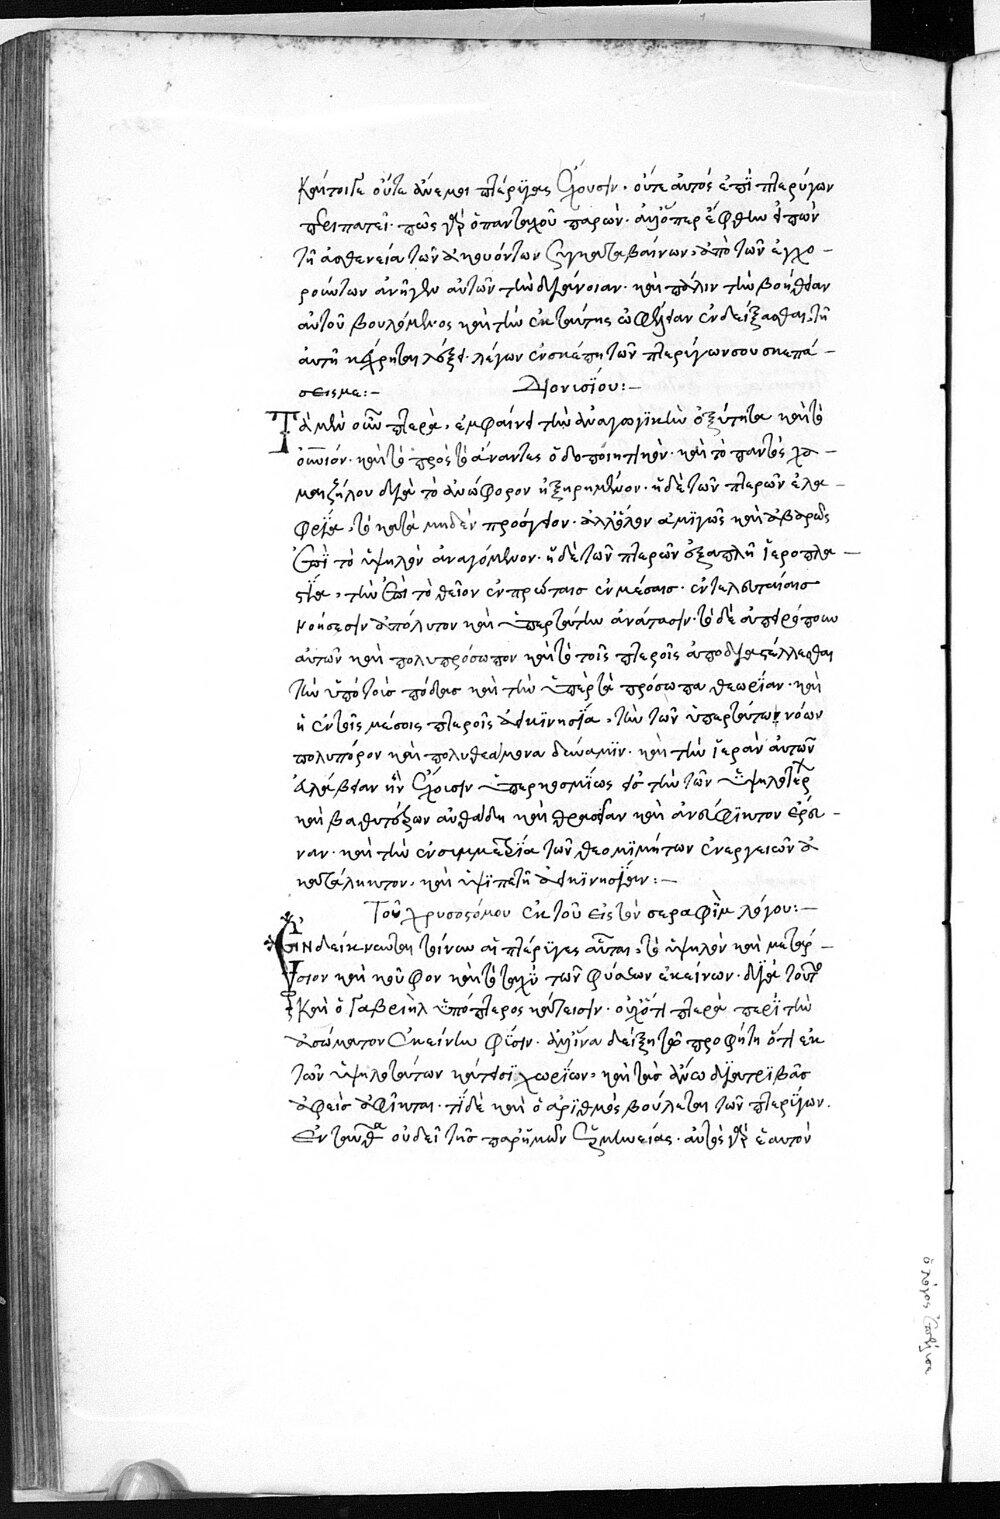 Καίτοιγε οὔτε ἄνεμοι πτέρϋγας ἔχουσιν· οὔτε αὐτὸς ἐπὶ πτερύγων
περιπατεῖ· πῶς γὰρ ὁ πανταχοῦ παρών· ἀλλ' ὅπερ ἔφθην εἰπὼν
τῆ ἀσθενεία τῶν ἀκουόντων συγκαταβαίνων, ἀπὸ τῶν ἐγχω‑
ρούντων ἀνῆγεν αὐτῶν τὴν διάνοιαν· καὶ πάλιν τὴν βοήθειαν
αὐτοῦ βουλόμενος καὶ τὴν ἐκ ταύτης ὠφέλειαν ἐνδείξασθαι, τῆ
αὐτῆ κέχρηται λέξει· λέγων ἐν σκέπη τῶν πτερύγων σου σκεπά‑
σεις με:‑ Διονυσΐου:‑
Τὰ μὲν οὖν πτερὰ, ἐμφαίνει τὴν ἀναγωγϊκὴν ὀξύτητα καὶ τὸ
οὐράνιον· καὶ τὸ πρὸς τὸ ἄναντες ὁδοποιητικόν· καὶ τὸ παντὸς χα‑
μαιζήλου διὰ τὸ ἀνώφορον ἐξηρημένον· ἡ δὲ τῶν πτερῶν ἐλα‑
φρΐα, τὸ κατὰ μηδὲν πρόσγειον· ἀλλ' ὅλον ἀμϊγῶς καὶ ἀβαρῶς
ἐπὶ τὸ ὑψηλὸν ἀναγόμενον· ἡ δὲ τῶν πτερῶν ἑξαπλῆ ἱεροπλα‑
στΐα, τὴν ἐπὶ τὸ θεῖον ἐν πρώταις ἐν μέσαις· ἐν τελευταίαις
νοήσεσιν ἀπόλυτον καὶ ὑπερτάτην ἀνάτασιν· τὸ δὲ ἀπειρόπουν
αὐτῶν καὶ πολυπρόσωπον καὶ τὸ τοῖς πτεροῖς ἀποδιαστέλλεσθαι
τὴν ὑπὸ τοὺς πόδας καὶ τὴν ὑπὲρ τὰ πρόσωπα θεωρΐαν· καὶ
ἡ ἐν τοῖς μέσοις πτεροῖς ἀεικϊνησΐα, τὴν τῶν ὑπερτάτων νόων
πολυπόρον καὶ πολυθεάμονα δύναμϊν· καὶ τὴν ἱερὰν αὐτῶν
εὐλάβειαν ἣν ἔχουσιν ὑπερκοσμΐως εἰς τὴν τῶν ὑψηλοτέρων
καὶ βαθυτέρων αὐθάδη καὶ θρασεῖαν καὶ ἀνέφϊκτον ἔρευ‑
ναν· καὶ τὴν ἐν συμμετρΐα τῶν θεομϊμήτων ἐνεργειῶν ἀ
κατάληκτον, καὶ ὑψϊπετῆ ἀεικϊνησΐαν:‑
Τοῦ χρυσοστόμου ἐκ τοῦ εἰς τὸν σεραφὶμ λόγου:‑
Τί ἐνδείκνυνται τοίνυν αἱ πτέρϋγες αὗται, τὸ ὑψηλὸν καὶ μετάρ‑
σιον καὶ κοῦφον καὶ τὸ ταχὺ τῶν φύσεων ἐκείνων· διὰ τοῦτο
Καὶ ὁ Γαβριὴλ ὑπόπτερος κάτεισιν· οὐχ ὅτι πτερὰ περὶ τὴν
ἀσώματον ἐκείνην φύσιν· ἀλλ' ἵνα δείξη τῶ προφήτη ὅτι ἐκ
τῶν ὑψηλοτάτων κάτεισϊ χωρΐων, καὶ τὰς ἄνω διατριβὰς
ἀφεὶς ἀφῖκται· τί δὲ καὶ ὁ ἀρϊθμὸς βούλεται τῶν πτερΰγων.
Ἐνταῦθα οὐδεῖ τῆς παρ' ἡμῶν ἑρμηνείας· αὐτὸς γὰρ ἑαυτὸν